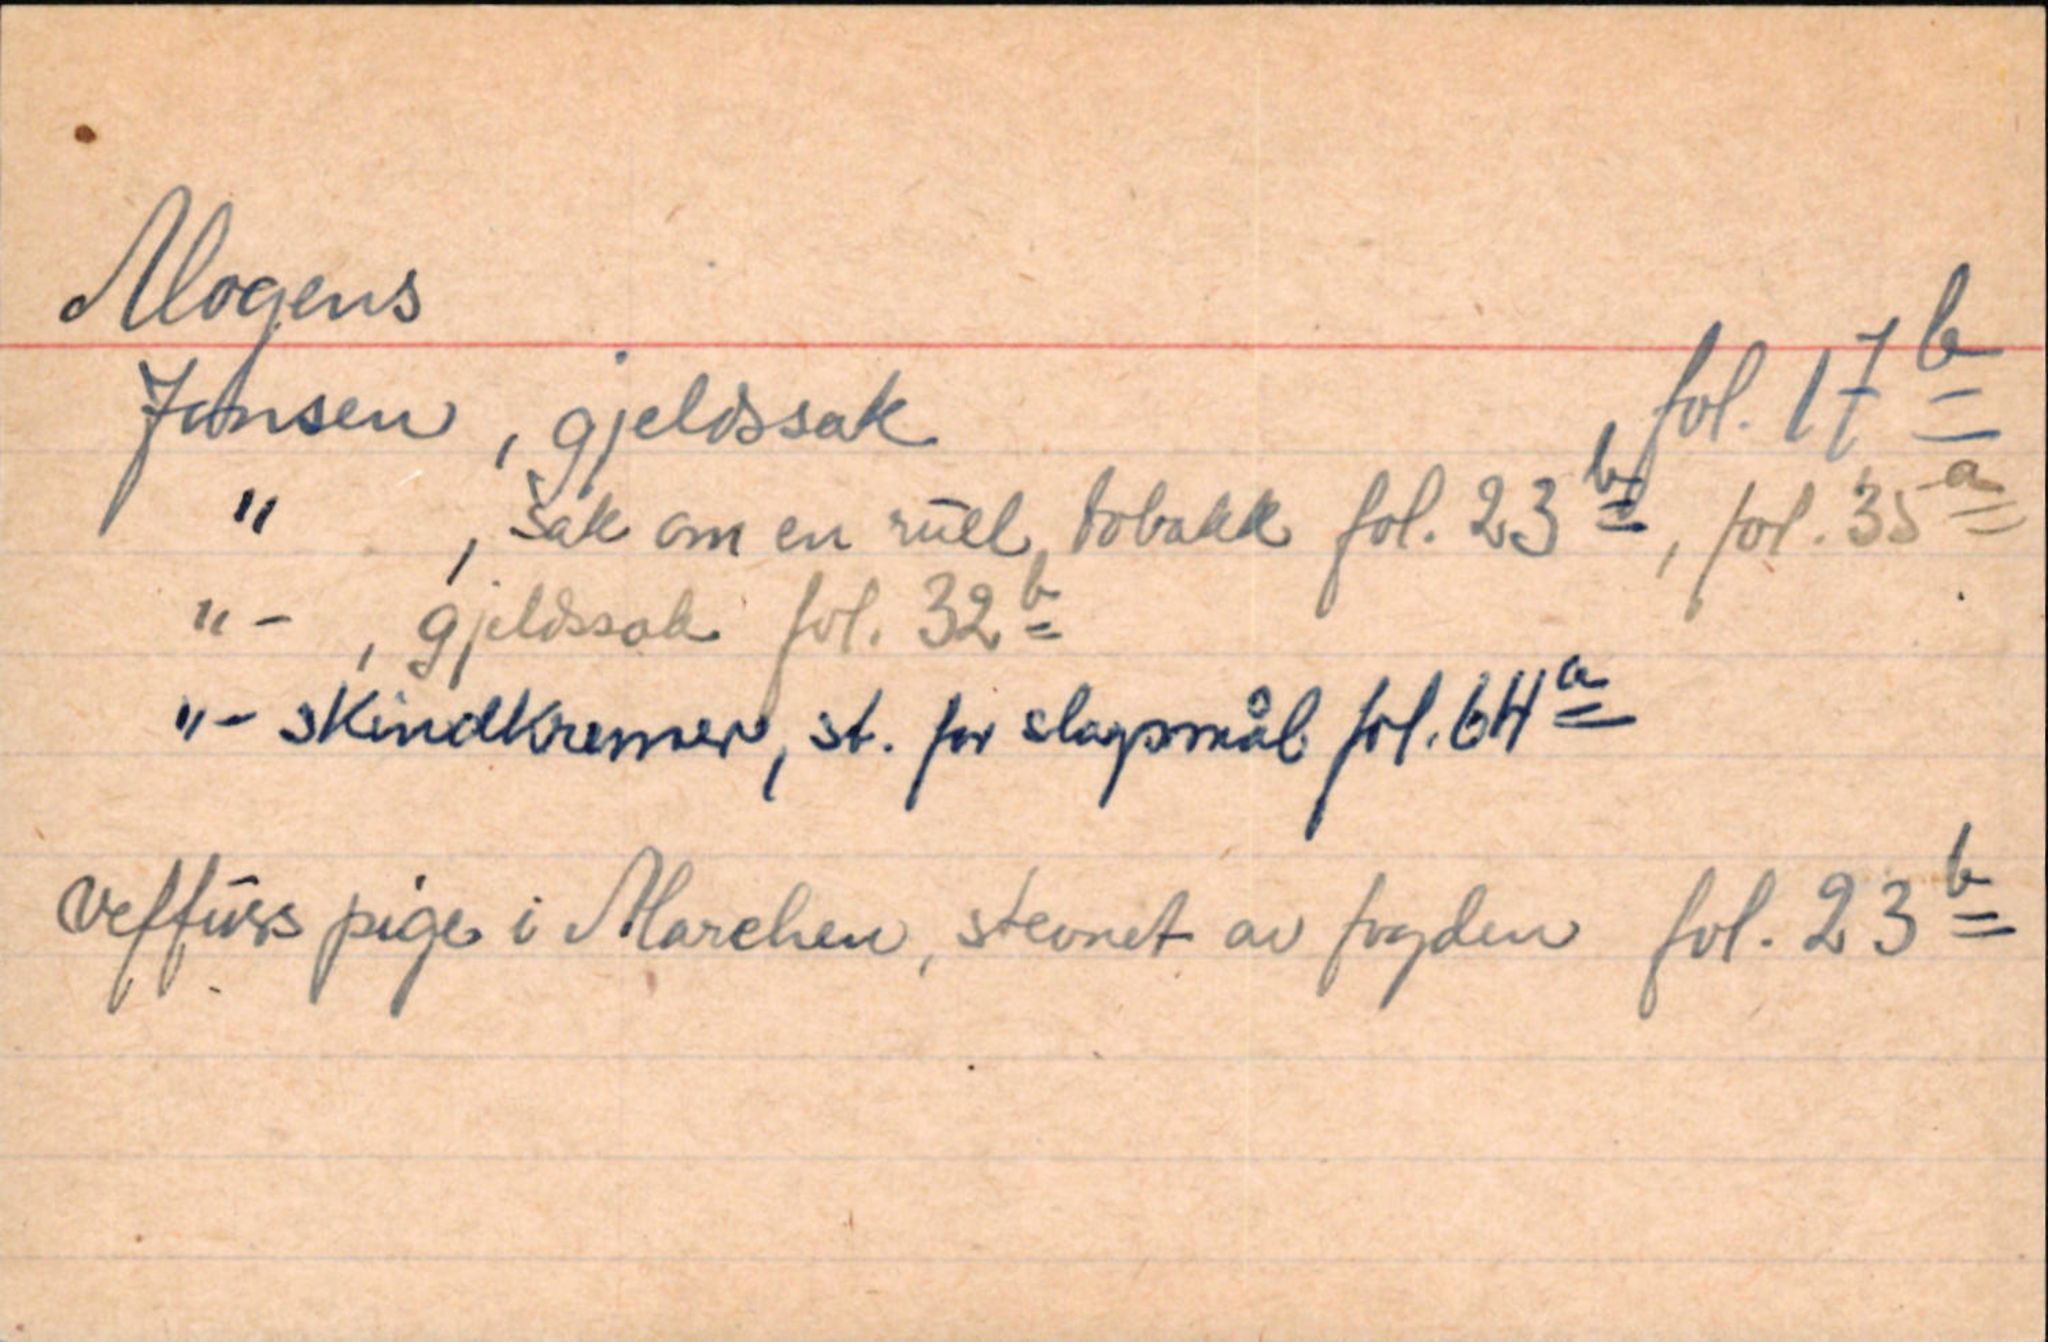 Mogens
Jansen, gjeldssak fol. 17b
" , Sak om en rull tobakk fol. 23b, fol. 35a
"- , gjeldssak fol. 32b
"- skindkremer, st. for slagsmål fol. 64a
veffuss pige i Marchen, stevnet av fogden fol. 23b